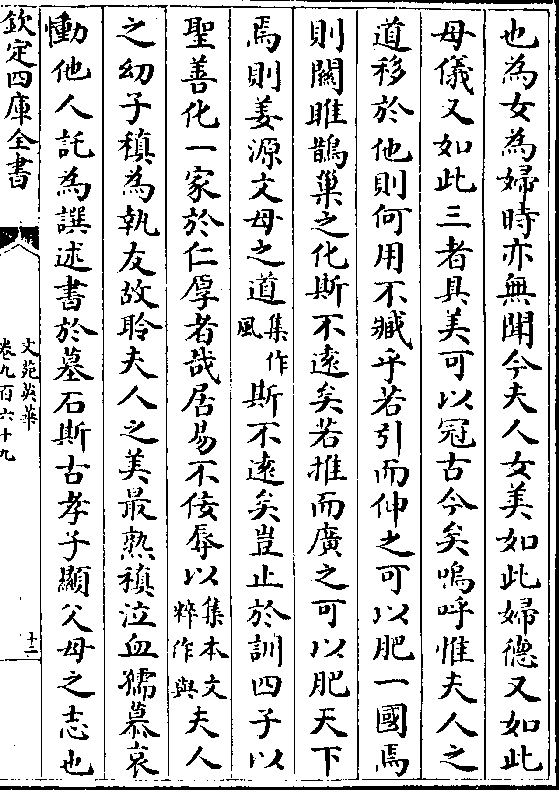 也為女為婦時亦無聞今夫人女美如此婦德又如此
母儀又如此三者具美可以冠古今矣嗚呼惟夫人之
道移於他則何用不臧乎若引而伸之可以肥一國焉
則關雎鵲巢之化斯不逺矣若推而廣之可以肥天下
焉則姜源文母之道集作風斯不逺矣豈止於訓四子以
聖善化一家於仁厚者哉居易不佞辱以集本文粹作與夫人
之幼子稹為執友故聆夫人之美最熟稹泣血孺慕哀
慟他人託為譔述書於墓石斯古孝子顯父母之志也
欽定四庫全書
文苑英華
卷九百六十九
十二